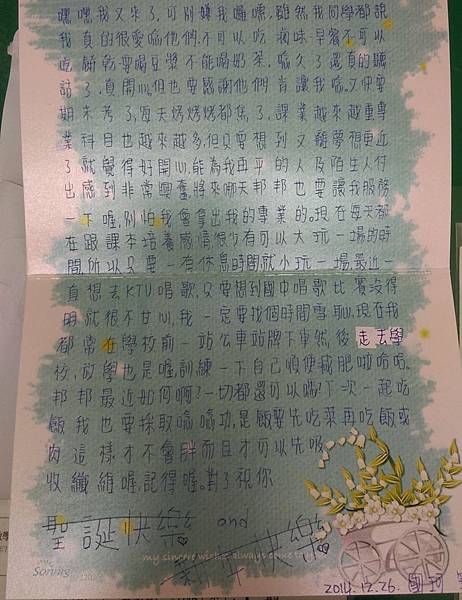 嘿嘿我又來了,可別嫌我囉嗦,雖然我同學都說
我真的很愛唸他們,不可以吃 消夜早餐不可以
吃餅乾要喝豆漿不能喝奶茶,唸久了還真的聽
話了,真開心,但也要感謝他們肯讓我唸。又快要
期末考了,每天烤烤烤都焦了,課業越來越重專
業科目也越來越多,但只要想到又離夢想更近
了就覺得好開心,能為我在乎的人及陌生人付
出感到非常興奮,將來哪天邦邦也要讓我服務
一下喔,別怕我會拿出我的專業的。現在每天都
在跟課本培養感情很少有可以大玩一場的時
間所以只要一有休息時間就小玩一場,最近一
直想去KTV唱歌,只要想到國中唱歌比賽沒得
名就很不甘心,我一定要找個時間雪恥心,現在我
都常在學校前一站公車站牌下車然後走去學
校,放學也是喔訓練一下自己順便減肥啦哈哈。
邦邦最近如何啊?一切都還可以嗎?下一次一起吃
飯我也要採取唸唸功,是飯要先吃菜再吃飯或
肉這樣才不會胖而且才可以先吸
收纖維喔,記得喔。對了祝你
聖誕快樂 and
新年快樂
my sincere wishes always come
2014.12.26.